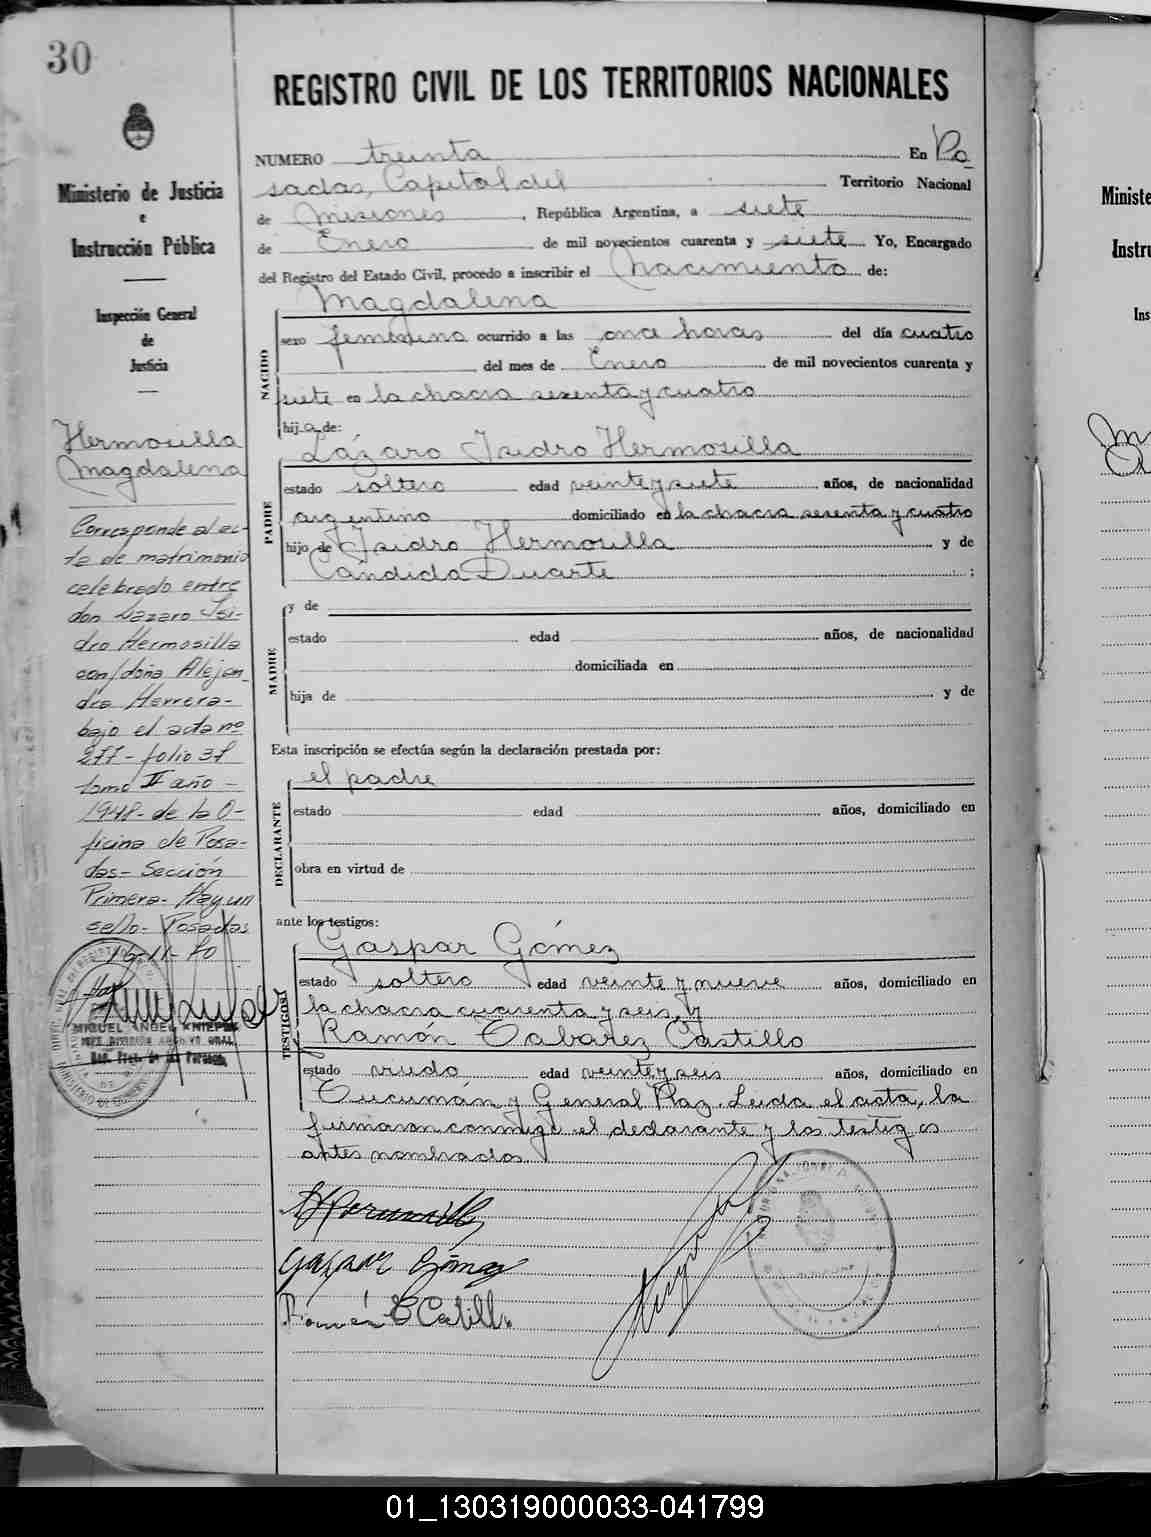 30
Ministerio de Justicia
e
Instrucción Pública
Inspección General
de
Justicia
Hermosilla
Magdalena
Corresponde al ac-
ta de matrimonio
celebrado entre
don Lazaro Isi-
dro Hermosilla
con/doña Alejan-
dra Herrera-
bajo el acta nº
277- folio 37
tomo II año -
1948- de la O-
ficina de Posa-
das- Sección
Primera- Hay un
sello- Posadas
MIGUEL ANGEL KNIEPSS
REGISTRO CIVIL DE LOS TERRITORIOS NACIONALES
NUMERO treinta En Po
sadas, Capital del Territorio Nacional
de Misiones, República Argentina, a siete
de Enero de mil novecientos cuarenta y siete Yo, Encargado
del Registro del Estado Civil, procedo a inscribir el Nacimiento de:
NACIDO
Magdalena
sexo femenino ocurrido a las once horas del día cuatro
del mes de Enero de mil novecientos cuarenta y
siete en la chacra sesenta y cuatro
hija de:
PADRE
Lázaro Isidro Hermosilla
estado soltero edad veinte y siete años, de nacionalidad
argentino domiciliado en la chacra sesenta y cuatro
hijo de Isidro Hermosilla y de
Cándida Duarte ;
MADRE
y de
estado edad años, de nacionalidad
domiciliada en
hija de y de
Esta inscripción se efectúa según la declaración prestada por:
DECLARANTE
el padre
estado edad años, domiciliado en
obra en virtud de
ante los testigos:
TESTIGOS
Gaspar Gómez
estado soltero edad veinte y nueve años, domiciliado en
la chacra cuarenta y seis, y
Ramón Tabarez Castillo
estado viudo edad veinte y seis años, domiciliado en
Tucumán y General Paz. Leída el acta, la
firmaron conmigo el declarante y los testigos
antes nombrados.
Gaspar Gómez
Ramón T Castillo
Ministe
Instru
Ins
01_130319000033-041799